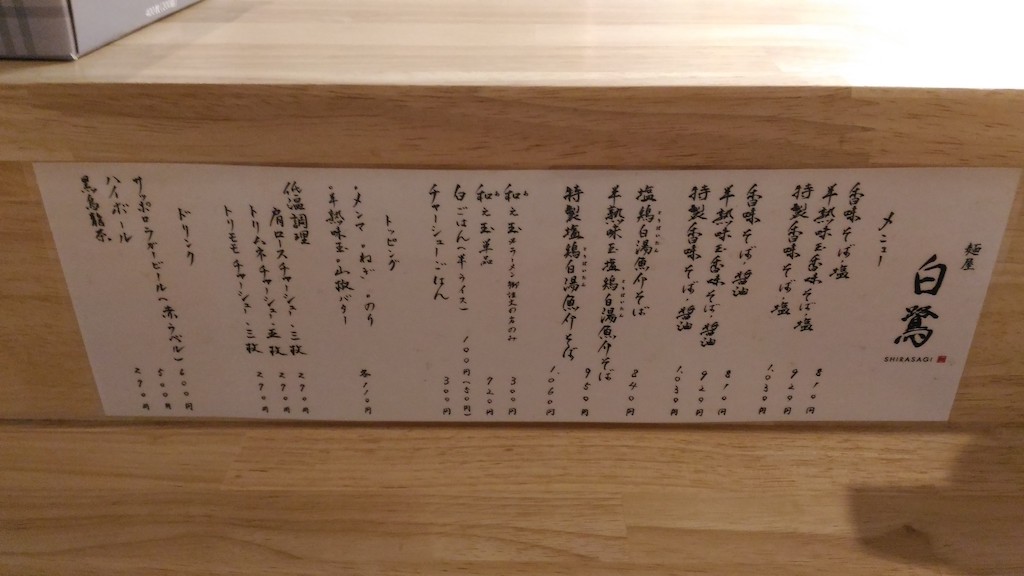 麺屋
白鷺
SHIRASAGI
メニュー
香味そば 塩 810円
半熟味玉香味そば・塩 920円
特製香味そば・塩 1,030円
香味そば 醤油 810円
半熟味玉香味そば・醤油 920円
特製香味そば・醤油 1,030円
塩鶏白湯魚介そば 840円
半熟味玉塩鶏白湯魚介そば 950円
特製塩鶏白湯魚介そば 1,060円
和え玉 300円
和え玉単品 420円
白ごはん(半ライス) 100円(50円)
チャーシューごはん 300円
トッピング
・メンマ ・ねぎ ・のり
・半熟味玉 ・山椒バター 各110円
低温調理
肩ロースチャーシュー・三枚 290円
トリムネチャーシュー・五枚 290円
トリモモチャーシュー・三枚 290円
ドリンク
サッポロラガービール(赤ラベル) 600円
ハイボール 500円
黒烏龍茶 290円